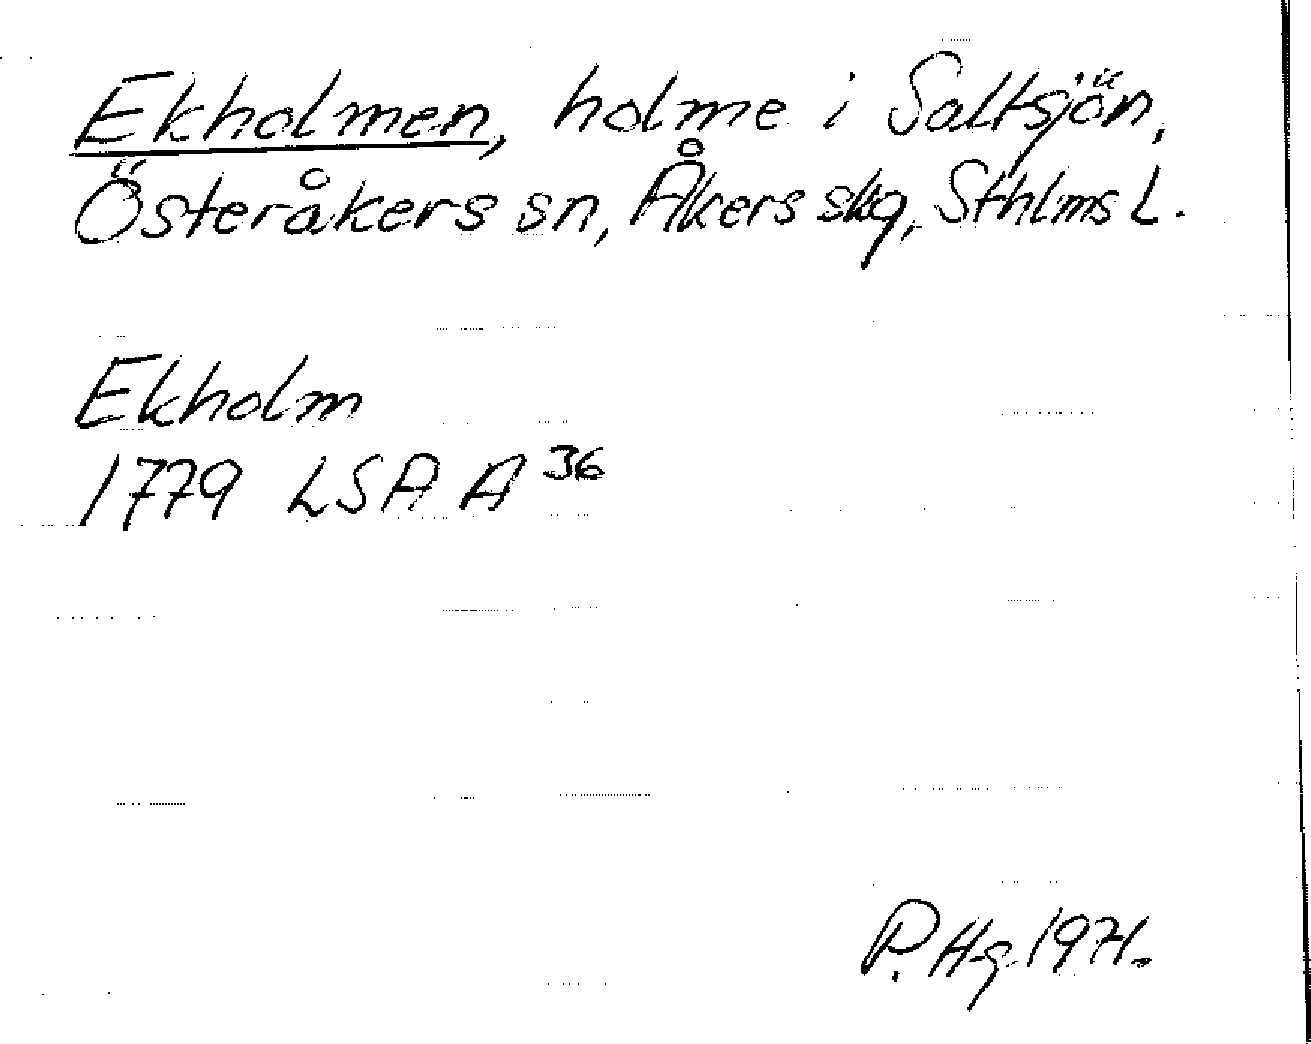 Ekholmen, holme i Saltsjön,
Österåkers sn, Åkers skg, Sthlms L.
Ekholm
1779 LSA A 36
P. Hg. 1971.